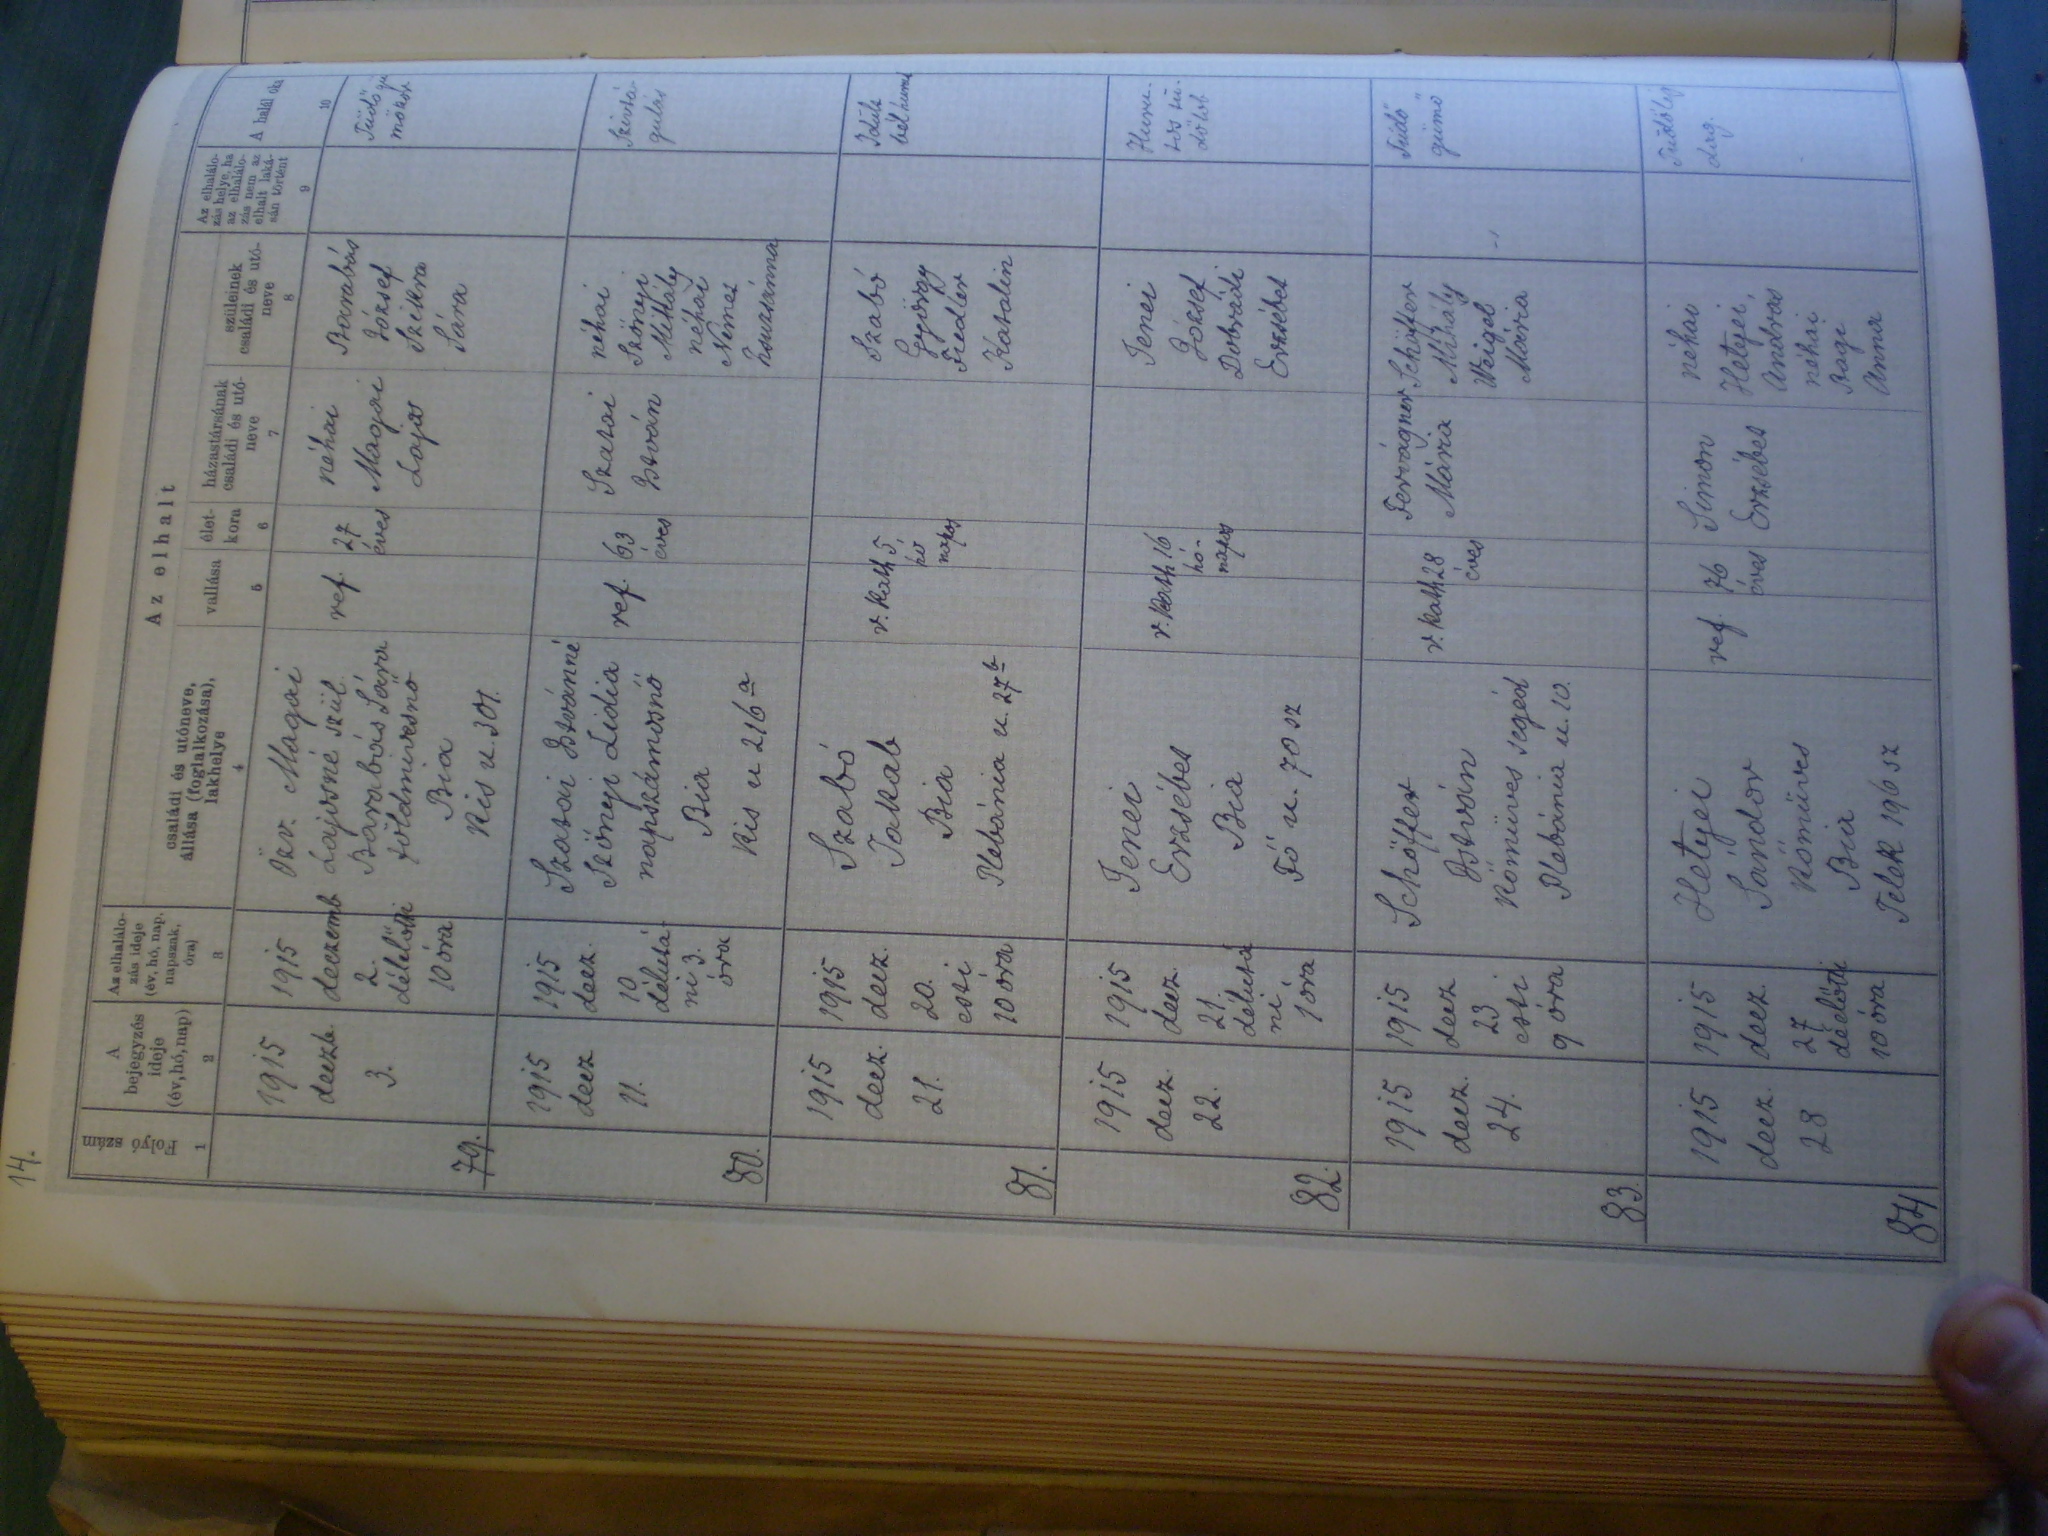 14.
Az elhalt
Folyó szám
A bejegyzés ideje (év, hó, nap)
Az elhalálo-
zás ideje
(év, hó, nap,
napszak,
óra)
családi és utóneve,
állása (foglalkozása),
lakhelye
vallása
élet-
kora
házastársának
családi és utó-
neve
szüleinek
családi és utó-
neve
Az elhalálo-
zás helye, ha
az elhalálo-
zás nem az
elhalt laká-
sán történt
A halál oka
1
2
3
4
5
6
7
8
9
10
79.
1915
deczb.
3.
1915
deczemb
2.
délelőtti
10 óra
Özv. Magai
Lajosné szül.
Barabás Sára
földmivesnő
Bia
Kis u. 301.
ref.
27
éves
néhai
Magai
Lajos
Barabás
József
Szikra
Sára
Tüdő
80.
1915
decz
11.
1915
decz.
10.
délutá-
ni 3.
óra
Szatai Istvánné
Szőnyi Lidia
napszámosnő
Bia
Kis u 216 a
ref.
63
éves
Szatai
István
néhai
Szőnyi
Mihály
néhai
Nemes
Zsuzsánna
81.
1915
decz.
21.
1915
decz.
20.
esti
10 óra
Szabó
Jakab
Bia
Plebánia u. 27 b
r. kath
5.
hó
napos
Szabó
György
Fiedler
Katalin
bélhurut
82.
1915
decz.
22.
1915
decz.
21.
délutá
ni
1 óra
Jenei
Erzsébet
Bia
Fő u. 70 sz
r. kath
16
hó-
napos
Jenei
József
Dobrádi
Erzsébet
83.
1915
decz.
24.
1915
decz
23
esti
9 óra
Schöffer
István
Kőmüves segéd
Plebánia u. 10.
r. kath
28
éves
Mária
Schöffer
Mihály
Weigel
Mária
Tüdő
gümő
84
1915
decz.
28
1915
decz.
27
délelőtti
10 óra
Hetyei
Sándor
Kőmüves
Bia
Telek 196 sz
ref.
76
éves
Simon
Erzsébet
néhai
Hetyei
András
néhai
Bagi
Anna